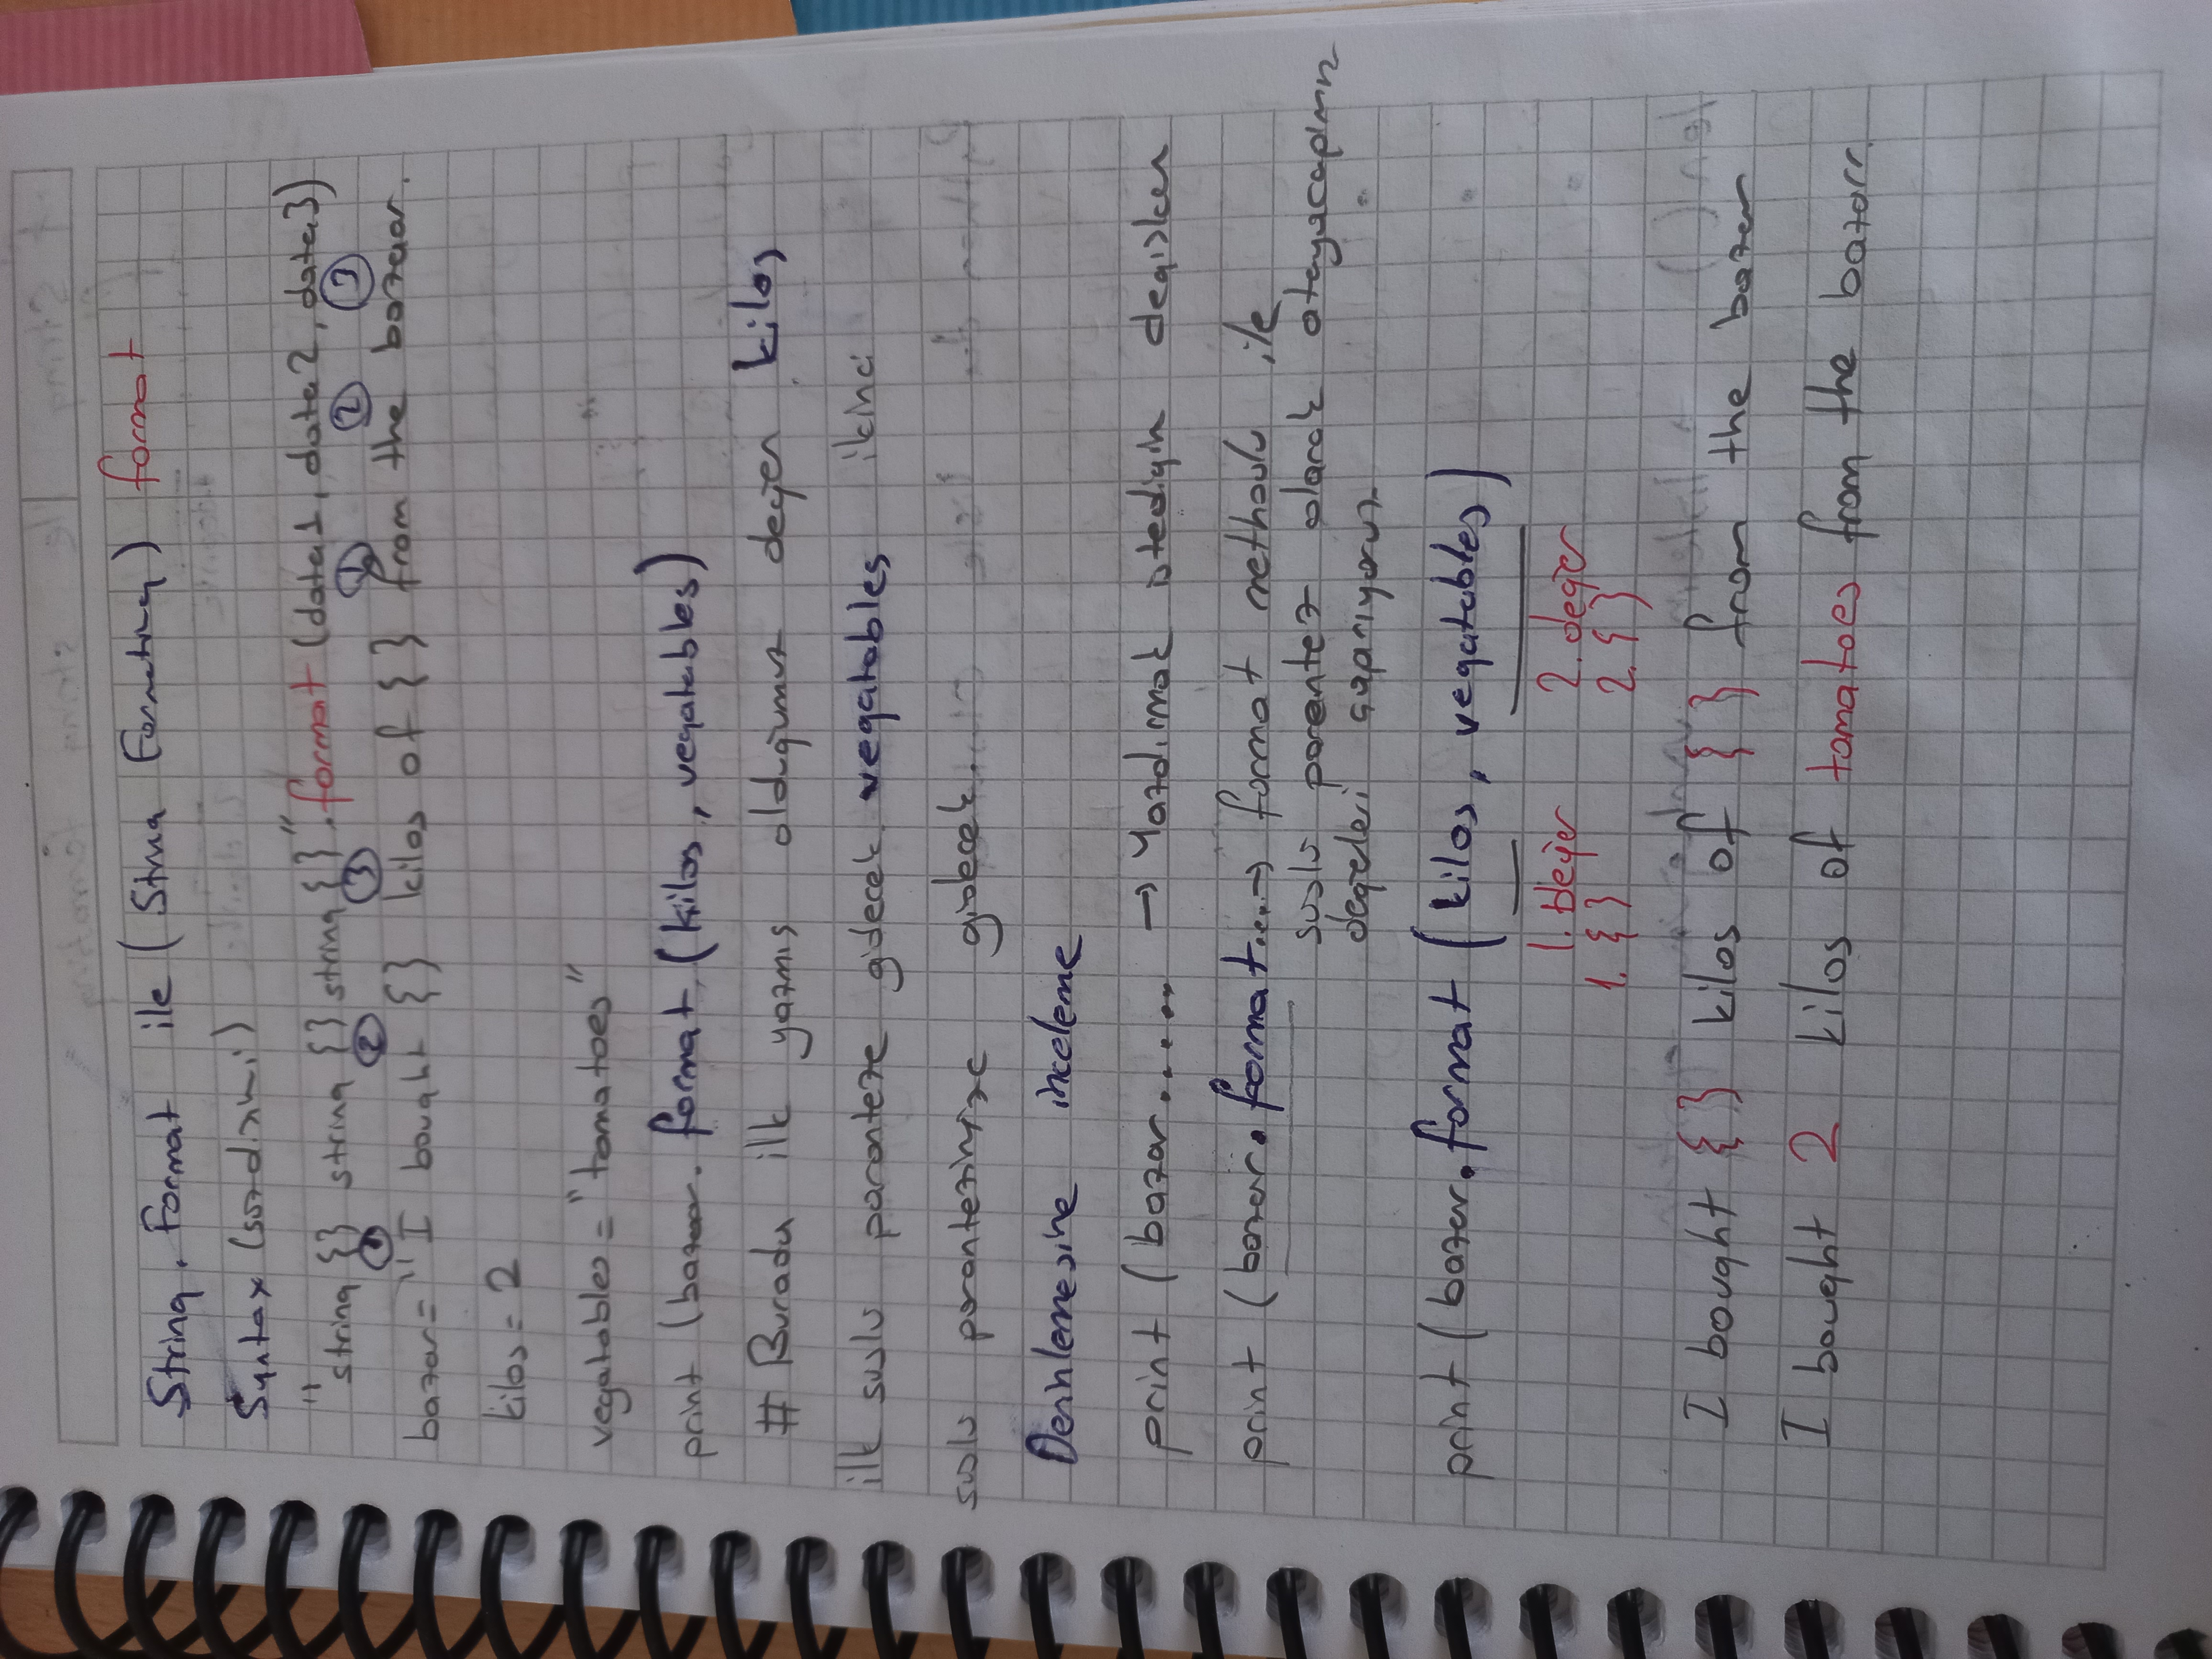 String.Format ile (String Formating) format
Syntax (sözdizimi)
"string {} string {} string {}".format (data1, data2, data3)
1 2 3 1 2 3
bazar= "I bought {} kilos of {} from the bazaar.
kilos = 2
vegatables = "tomatoes"
print (bazaar. format (kilos, vegatables)
# Burada ilk yazmış olduğumuz değer kilos
ilk süslü paranteze gidecek vegatables ikinci
süslü parantezimize gidecek.
Derinlemesine inceleme
print (bazar...... → Yazdırmak istediğin değişken
print (bazar.format....→ format methodu ile
süslü parantez olarak atayacağımız
değeleri çağırıyoruz
print (bazar.format (kilos, vegatables)
1. Değer 2. değer
1. {} 2. {}
I bought {} kilos of {} from the bazar
I bought 2 kilos of tomatoes from the bazarr.